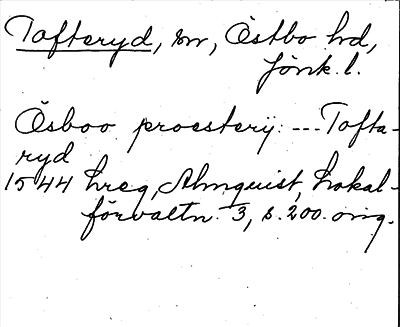 Tofteryd, sn, Östbo hd,
Jönk. l.
Ösboo proesterij: --- Tofta-
ryd
1544 hreg, Almquist, Lokal-
förvaltn. 3, s. 200. orig.